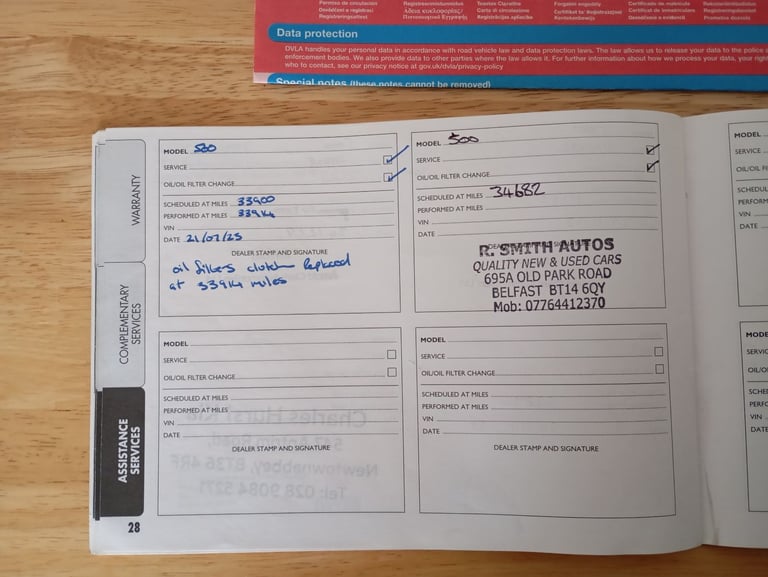 Permiso de circulación
Osvědčení o registraci
Registreringsattest
Registreerimistunnistus
Άδεια κυκλοφορίας/
Πιστοποιητικό Εγγραφής
Teastas Cláraithe
Carta di circolazione
Registrācijas apliecība
Forgalmi engedély
Ċertifikat ta' Reġistrazzjoni
Kentekenbewijs
Certificado de matrícula
Certificat de înmatriculare
Osvedčenie o evidencii
Rekisteröintitodistus
Registreringsbeviset
Prometna dozvola
Data protection
DVLA handles your personal data in accordance with road vehicle law and data protection laws. The law allows us to release your data to the police
enforcement bodies. We also provide data to other parties where the law allows it. For further information about how we process your data, your
who to contact, see our privacy notice at gov.uk/dvla/privacy-policy
Special notes (these notes cannot be removed)
WARRANTY
COMPLEMENTARY
SERVICES
ASSISTANCE
SERVICES
28
MODEL 500
SERVICE
OIL/OIL FILTER CHANGE
SCHEDULED AT MILES 33900
PERFORMED AT MILES 33914
VIN
DATE 21/07/25
DEALER STAMP AND SIGNATURE
oil filters clutch Replaced
at 33914 miles
MODEL 500
SERVICE
OIL/OIL FILTER CHANGE
SCHEDULED AT MILES 34682
PERFORMED AT MILES
VIN
DATE
R. SMITH AUTOS
QUALITY NEW & USED CARS
695A OLD PARK ROAD
BELFAST BT14 6QY
Mob: 07764412370
MODEL
SERVICE
OIL/OIL FILTER CHANGE
SCHEDULED AT MILES
PERFORMED AT MILES
VIN
DATE
DEALER STAMP AND SIGNATURE
MODEL
SERVICE
OIL/OIL FILTER CHANGE
SCHEDULED AT MILES
PERFORMED AT MILES
VIN
DATE
DEALER STAMP AND SIGNATURE
MODEL
SERVICE
VIN
DATE
MODEL
VIN
DATE